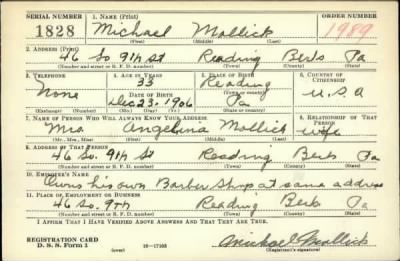 SERIAL NUMBER 1. NAME (Print) ORDER NUMBER
1828 Michael Mollick 1989
(First) (Middle) (Last)
2. ADDRESS (Print)
46 So 9th St Reading Berks Pa
(Number and street or R. F. D. number) (Town) (County) (State)
3. TELEPHONE 4. AGE IN YEARS 5. PLACE OF BIRTH 6. COUNTRY OF CITIZENSHIP
33 Reading
None DATE OF BIRTH Pa U.S.A
Dec 23. 1906
(Exchange) (Number) (Mo.) (Day) (Yr.) (State or country)
7. NAME OF PERSON WHO WILL ALWAYS KNOW YOUR ADDRESS 8. RELATIONSHIP OF THAT PERSON
Mrs Angelina Mollick wife
(Mr., Mrs., Miss) (First) (Middle) (Last)
9. ADDRESS OF THAT PERSON
46 So. 9th St Reading Berks Pa
(Number and street or R. F. D. number) (Town) (County) (State)
10. EMPLOYER'S NAME
Owns his own Barber Shop at same address
11. PLACE OF EMPLOYMENT OR BUSINESS
46 So. 9th Reading Berks Pa
(Number and street or R. F. D. number) (Town) (County) (State)
I AFFIRM THAT I HAVE VERIFIED ABOVE ANSWERS AND THAT THEY ARE TRUE.
REGISTRATION CARD
D. S. S. Form 1 (over) 16—17105 Michael Mollick
(Registrant's signature)